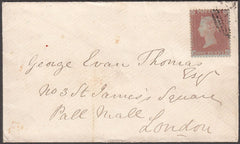 George Evan Thomas
Esqr
No 3 St James's Square
Pall Mall
London